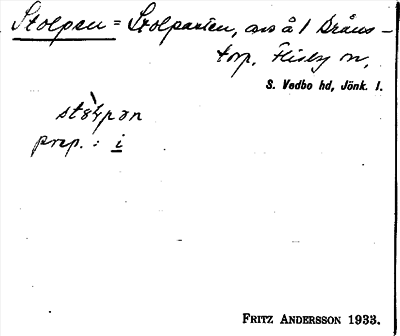 Stolpen = Stolparten, avs å 1 Dråus-
torp, Flisby sn,
S. Vedbo hd, Jönk. l.
stòlpən
prep.: i
FRITZ ANDERSSON 1933.